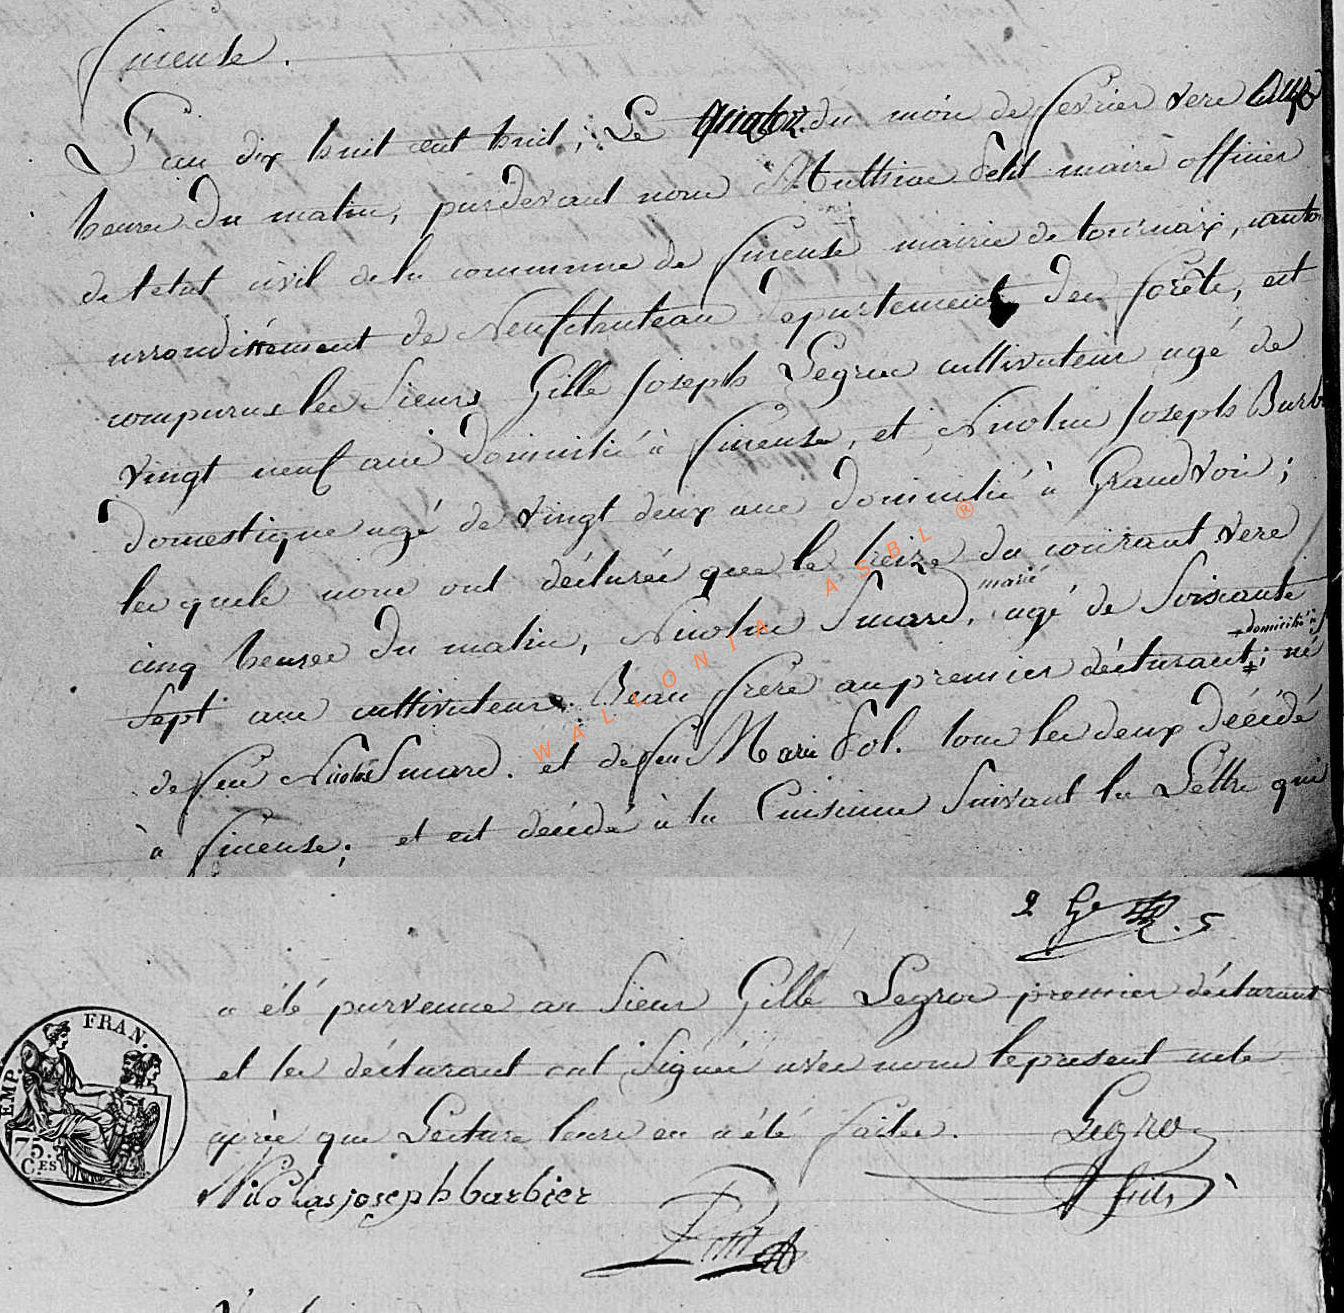 fineuse.
L'an dix huit cent huit, Le quatorz. du mois de fevrier vere onze
heures du matin, pardevant nous Matthias Petit maire officier
de letat civil de la commune de fineuse mairie de tournaix, canton
arrondissement de Neufchateau departement des forêts, est
comparus les Sieurs Gille Joseph Legros cultivateur agé de
vingt neuf ans domicilié à fineuse, et Nicolas Joseph Barb
domestique agé de vingt deux ans domicilié à Grandvoir;
les quels nous ont déclarés que le treize du courant vere
cinq heures du matin, Nicolas Simard, marié agé de Soisçante
Sept ans cultivateur. Beau frere au premier déclarant; né
domicilié à f
de feu Nicolas Simard. et de feu Marie Pol. tous les deux décédé
à fineuse; et est décédé à la Cuisinne Suivant la Lettre qui
2 Ge 5
a été parvenue au Sieur Gille Legros premier déclarant
et les déclarant ont Signés avec nous le present acte
après que Lecture leurs en a été faites. Legros
Nicolas joseph barbier fils
Petit
EMP. FRAN.
75. CES
WALLONIA ASBL ®